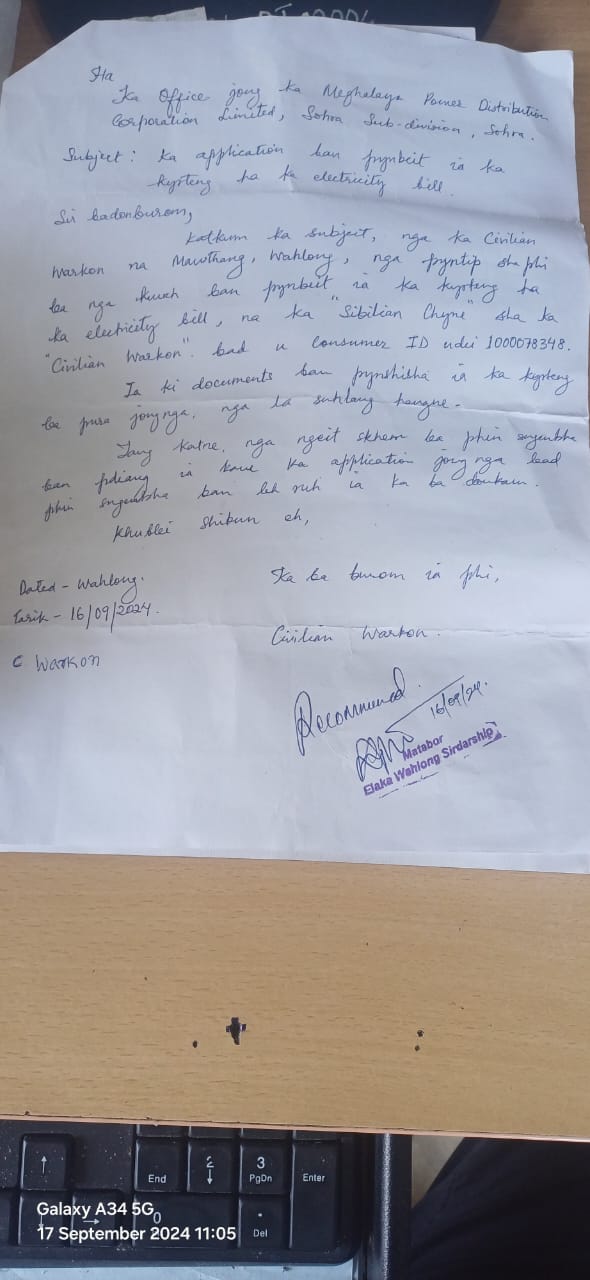 Ha
Ka Office jong ka Meghalaya Power Distribution
Corporation Limited, Sohra Sub-division, Sohra.
Subject: Ka application ban pynbeit ia ka
kyrteng ha ka electricity bill.
Sir badonburom,
Katkum ka subject, nga ka Civilian
Warkon na Mawthang, Wahlong, nga pyntip sha phi
ba nga kwah ban pynbeit ia ka kyrteng ha
ka electricity bill, na ka "Sibilian Chyne" sha ka
"Civilian Warkon". bad u Consumer ID udei 1000078348.
Ia ki documents ban pynshisha ia ka kyrteng
ba pura jong nga, nga la suhlang hangne.
Tang katne, nga ngeit skhem ba phin sngewbha
ban pdiang ia kane ka application jong nga bad
phin sngewbha ban leh ruh ia ka ba donkam.
Khublei shibun eh,
Ka ba burom ia phi,
Dated - Wahlong.
Tarik - 16/09/2024.
Civilian Warkon.
C Warkon
Recommend
16/09/24.
Matabor
Elaka Wahlong Sirdarship
End
2
3
PgDn
Enter
0
Del
Galaxy A34 5G
17 September 2024 11:05